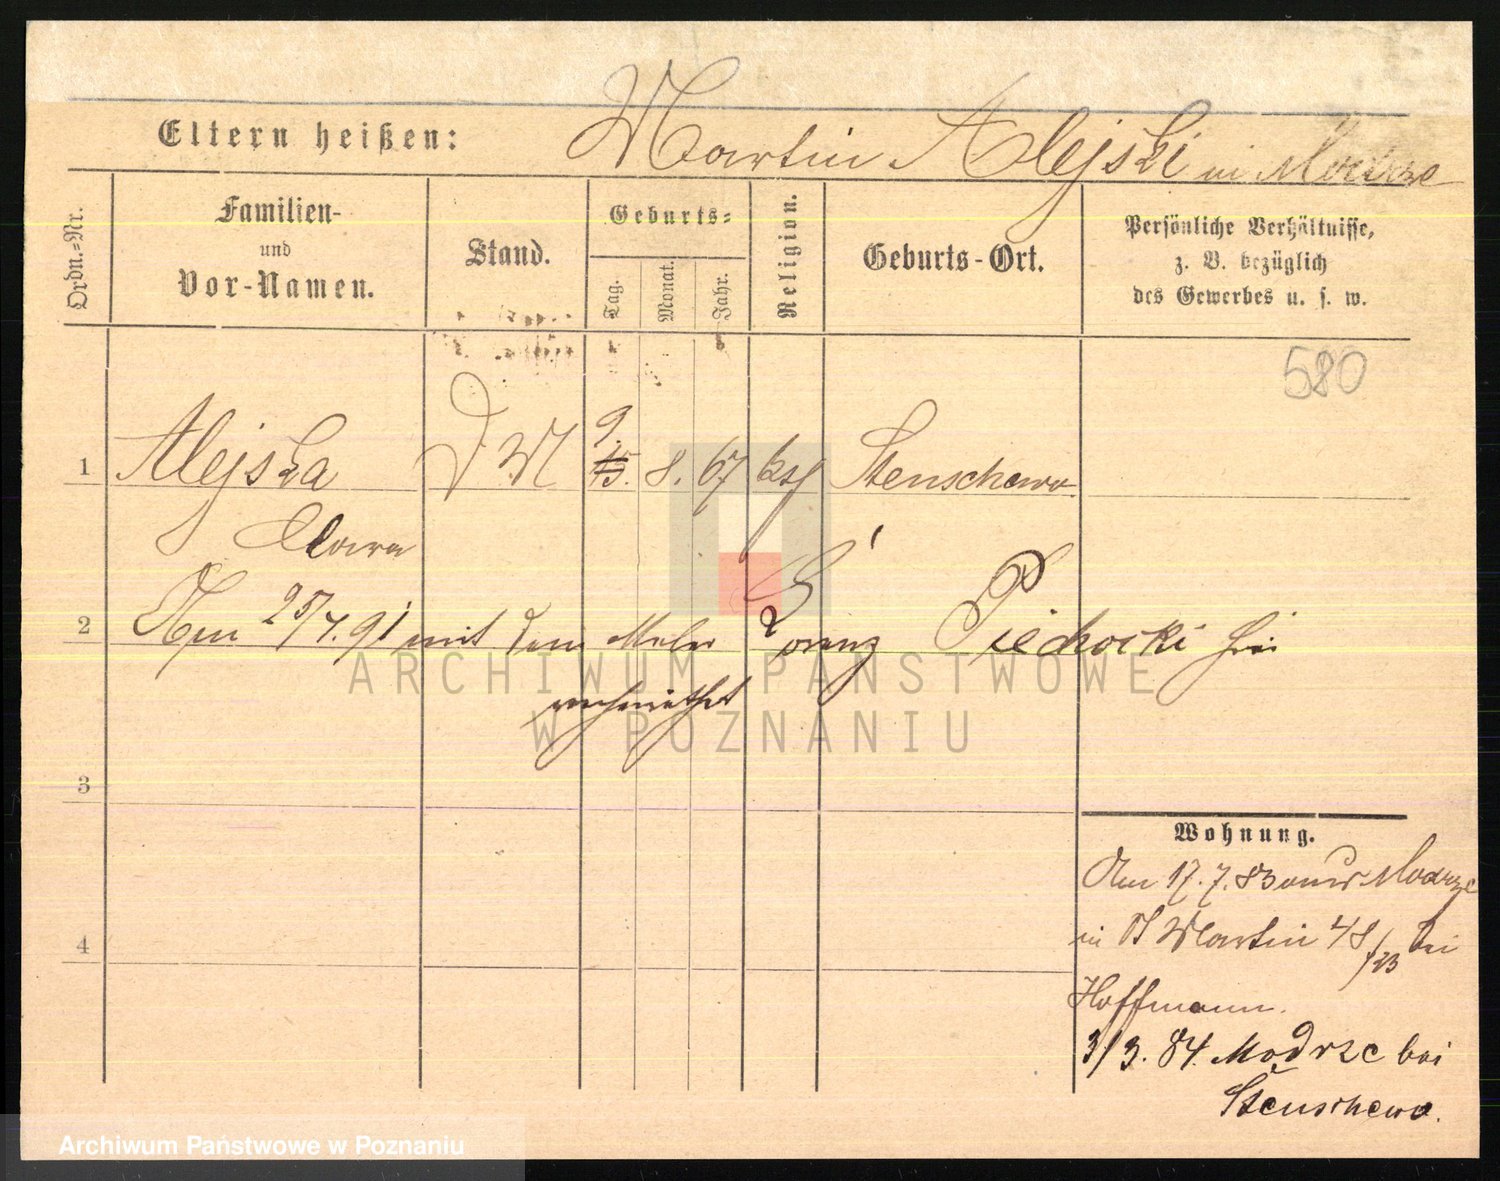 Eltern heißen: Martin Alejski in Modrze
Ordn.=Nr.
Familien-
und
Vor-Namen.
Stand.
Geburts=
Tag.
Monat.
Jahr.
Religion.
Geburts-Ort.
Persönliche Verhältnisse,
z. B. bezüglich
des Gewerbes u. s. w.
580
1 Alejska D. M 9. 15. 8. 67 kth Stenschewo
Clara
2 Am 25/7. 91 mit dem Maler Lorenz Piechocki hier
verheirathet
3
4
Wohnung.
Am 17. 7. 83 aus Modrze
in St Martin 48/23 bei
Hoffmann.
3/3. 84. Modrze bei
Stenschewo.
ARCHIWUM PAŃSTWOWE
W POZNANIU
Archiwum Państwowe w Poznaniu